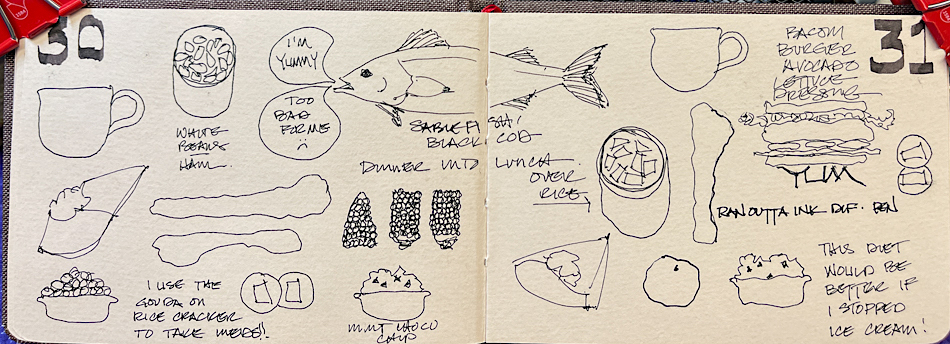 30
I'M
YUMMY
TOO
BAD
FOR ME
WHITE
BEANS
HAM.
SABLEFISH!
BLACK COD
DINNER INTO LUNCH.
OVER
RICE
I USE THE
GOUDA ON
RICE CRACKER
TO TAKE MEDS!!
MINT CHOCO
CHIP
31
BACON
BURGER
AVOCADO
LETTUCE
DRESSING
YUM
RAN OUTTA INK DIF. PEN
THIS DIET
WOULD BE
BETTER IF
I STOPPED
ICE CREAM!